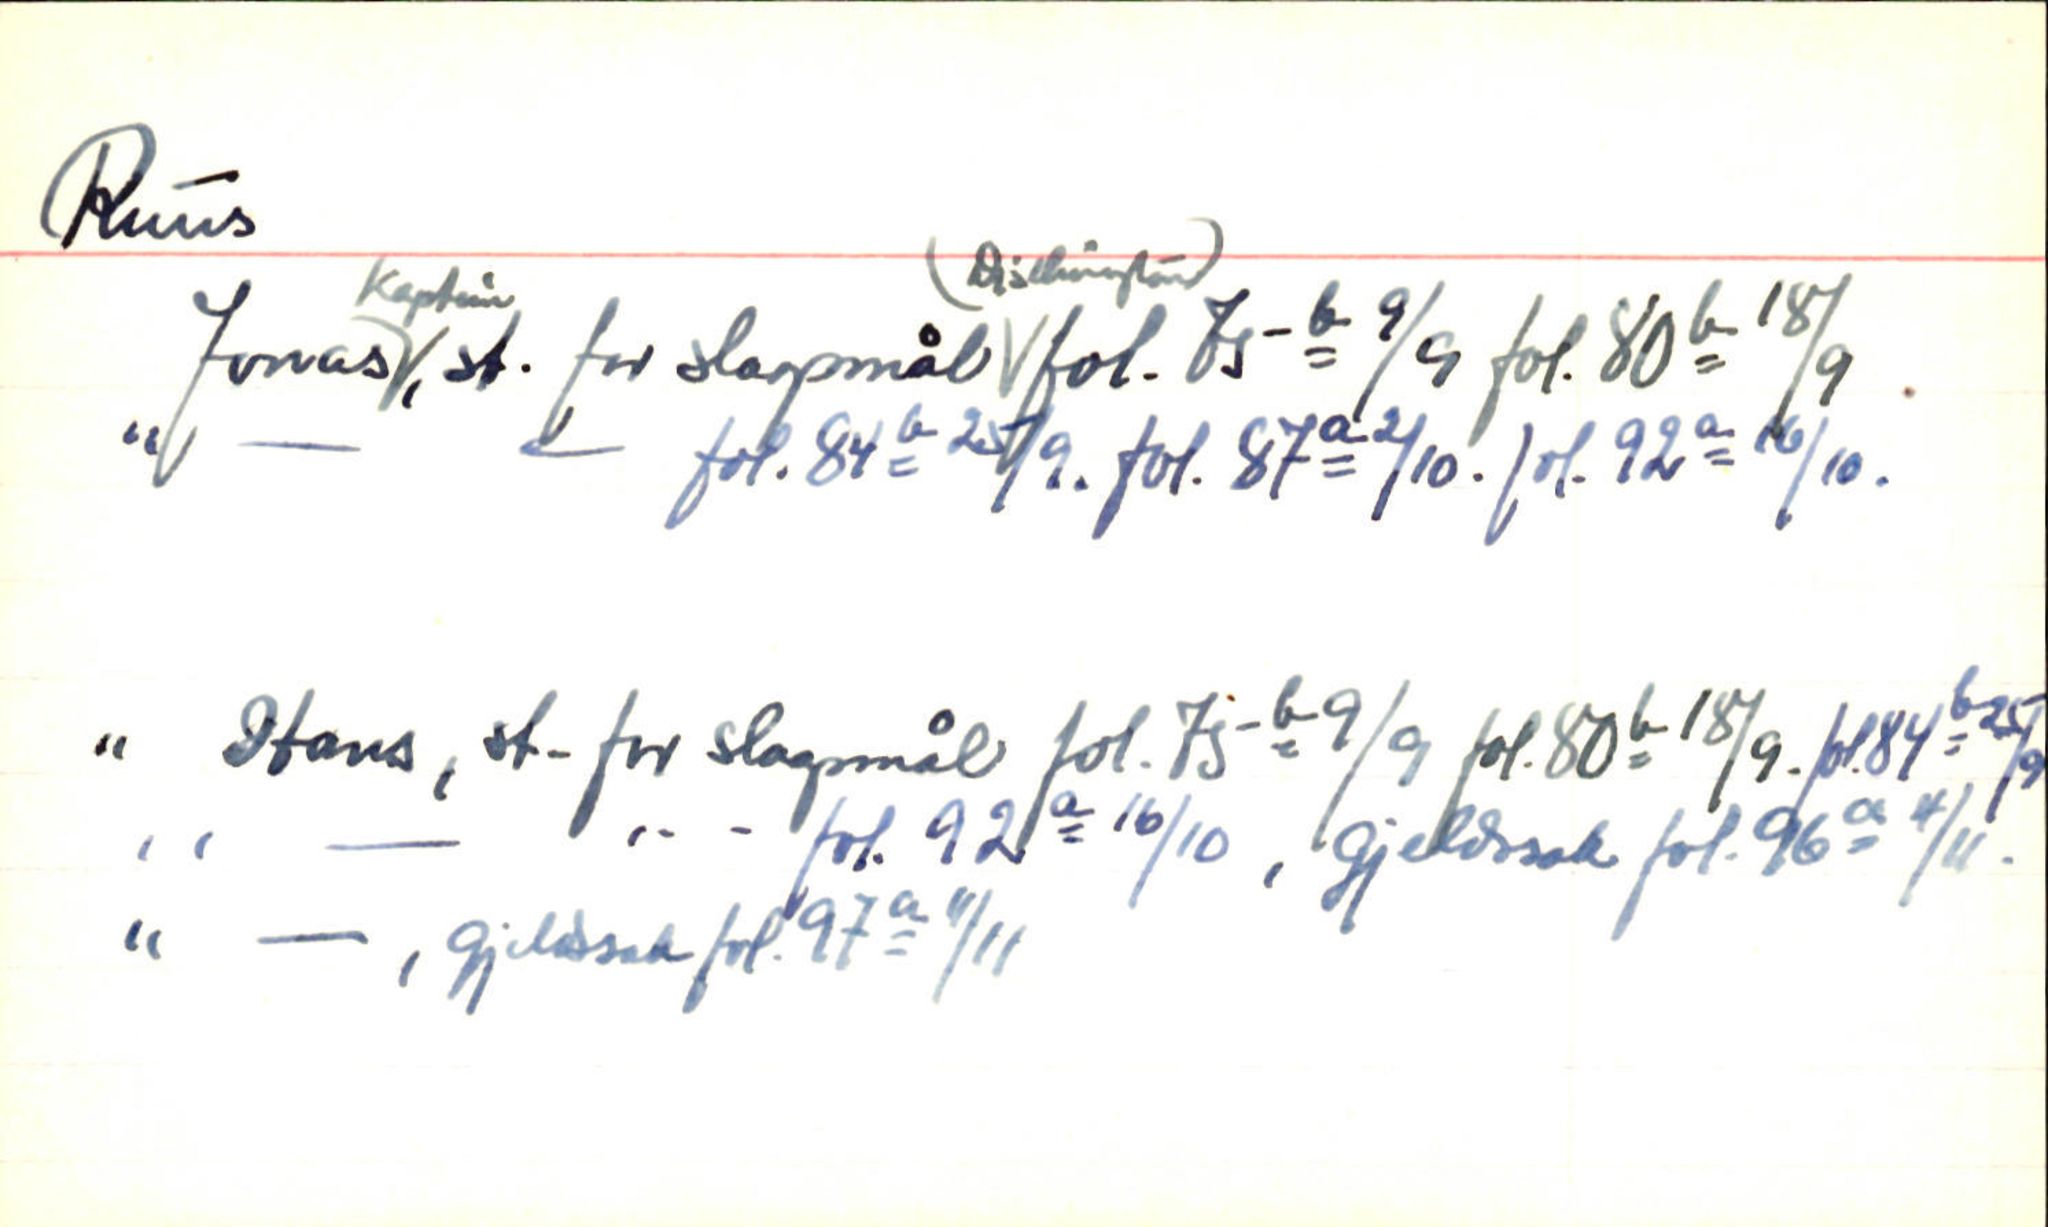 Ruus
Kaptein (Dischington)
Jonas, st. for slagsmål fol. 75 b 9/9 fol. 80 b 18/9
" — — fol. 84 b 25/9. fol. 87 a 2/10. fol. 92 a 16/10.
" Hans, st. for slagsmål fol. 75 b 9/9 fol. 80 b 18/9. fol. 84 b 25/9
" — " - - fol. 92 a 16/10, Gjeldssak fol. 96 a 4/11.
" —, Gjeldssak fol. 97 a 11/11